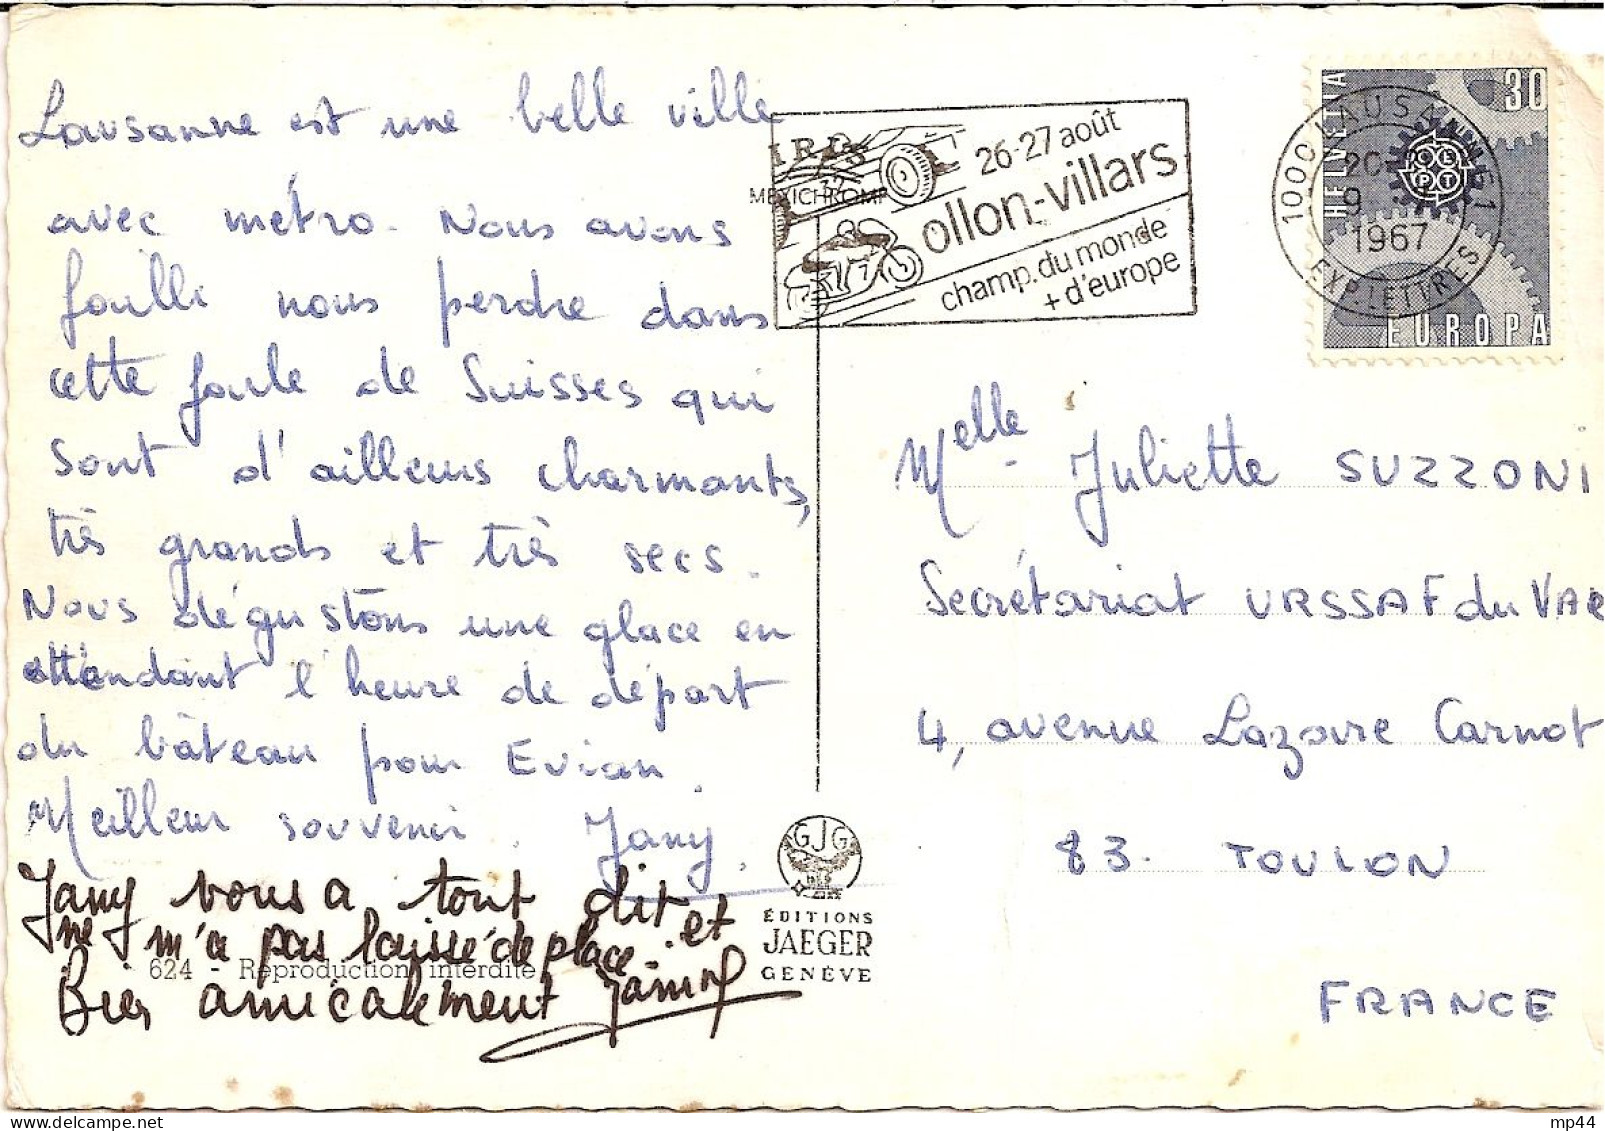 Lausanne est une belle ville
avec métro. Nous avons
failli nous perdre dans
cette foule de Suisses qui
sont d'ailleurs charmants,
très grands et très secs.
Nous dégustons une glace en
attendant l'heure de départ
du bâteau pour Evian.
Meilleur souvenir. Jany.
Jany vous a tout dit et
ne m'a pas laissé de place.
Bien amicalement
624 - Reproduction interdite
IRIS
MEXICHROME
26-27 août
ollon-villars
champ. du monde
+ d'europe
7
1000 LAUSANNE 1
9
1967
EXP. LETTRES
HELVETIA
30
CEPT
EUROPA
Melle Juliette SUZZONI
Secrétariat URSSAF du VAR
4, avenue Lazare Carnot
83. TOULON
FRANCE
GJG
ÉDITIONS
JAEGER
GENÈVE
mp44